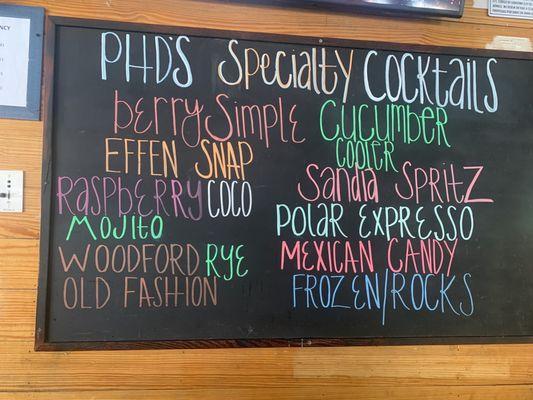 PHD'S Specialty Cocktails
berry Simple
EFFEN SNAP
RASPBERRY COCO
MOJITO
WOODFORD RYE
OLD FASHION
CUCUMBER
COOLER
Sandia Spritz
POLAR EXPRESSO
MEXICAN CANDY
FROZEN/ROCKS